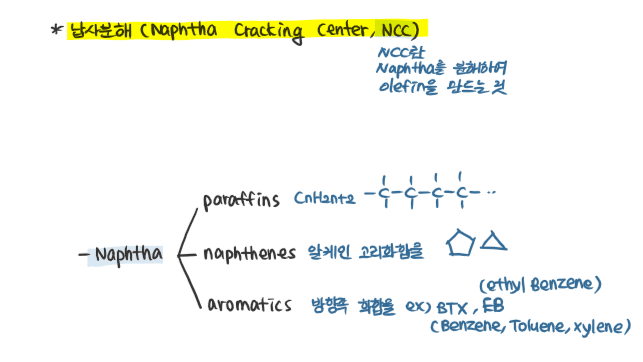 * 납사분해 (Naphtha Cracking Center, NCC)
NCC란
Naphtha를 분해하여
olefin을 만드는 것
paraffins CnH2n+2 -C-C-C-C- ..
- Naphtha naphthenes 알케인 고리화합물
(ethyl Benzene)
aromatics 방향족 화합물 ex) BTX, EB
(Benzene, Toluene, xylene)